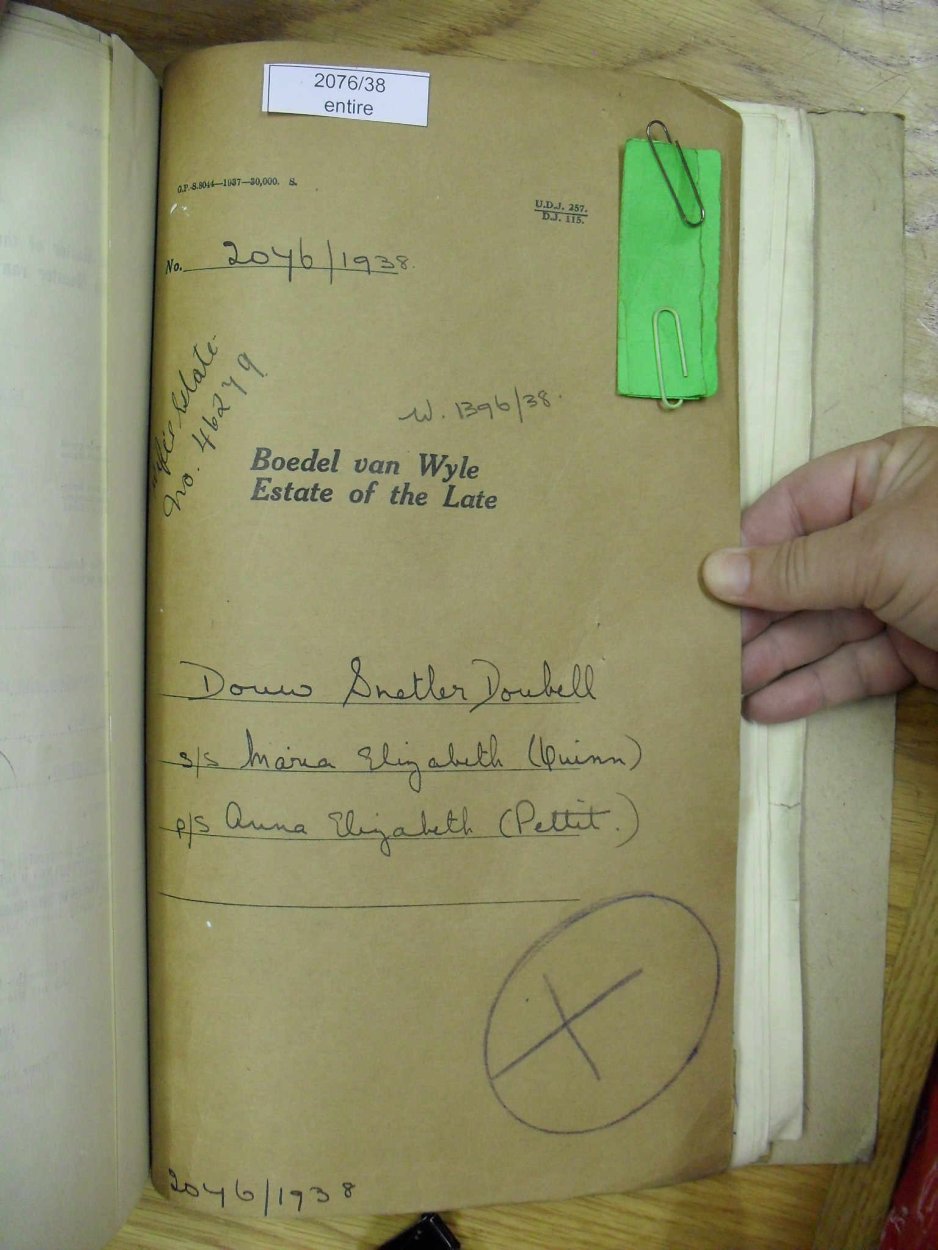 2076/38
entire
G.P.-S.8044—1937—30,000. S.
U.D.J. 257.
D.J. 115.
No. 2076/1938.
Estate.
No. 46279
W. 1396/38.
Boedel van Wyle
Estate of the Late
Douw Snetler Doubell
s/s Maria Elizabeth (Quinn)
p/s Anna Elizabeth (Pettit.)
2076/1938